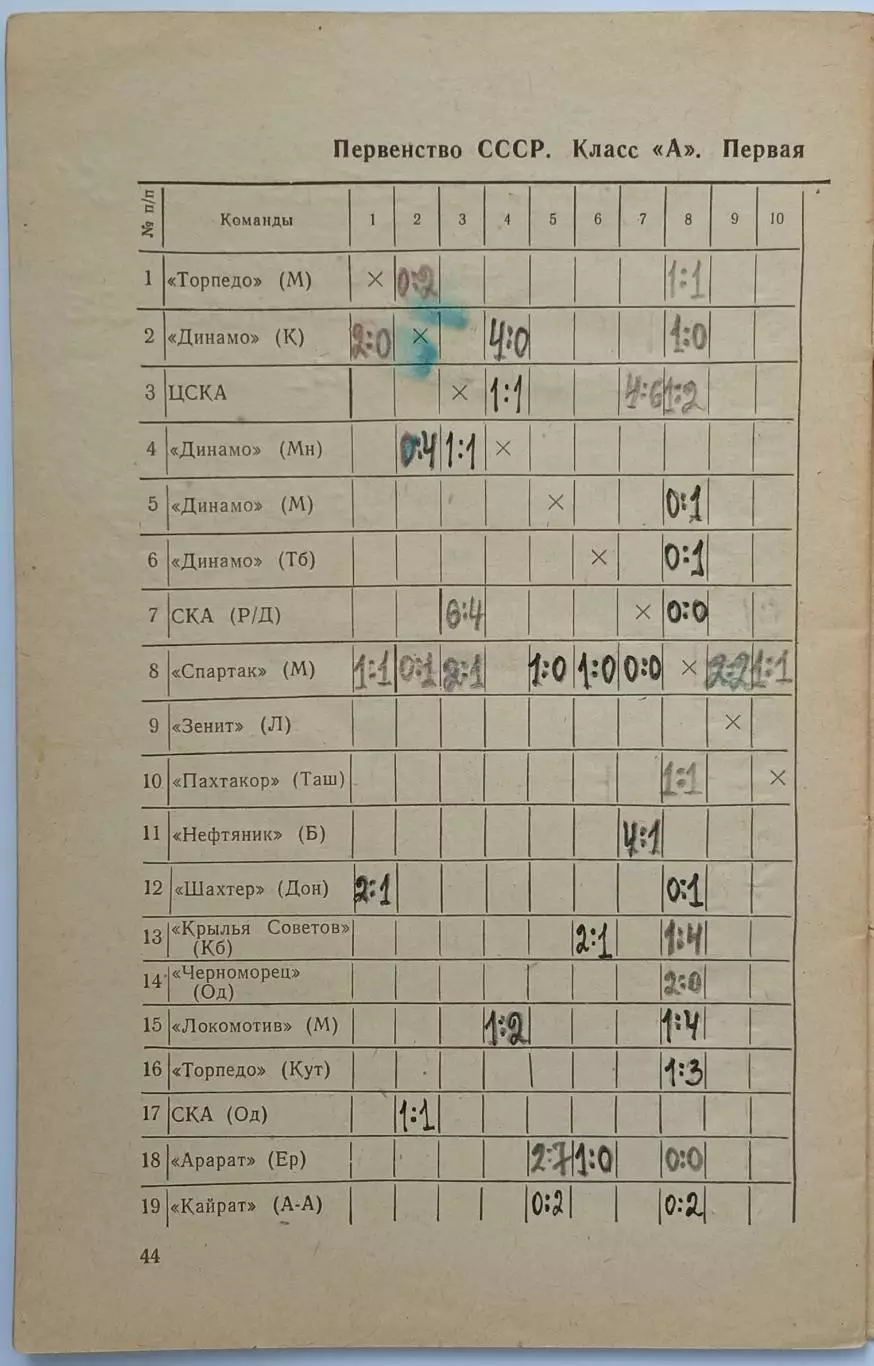 Первенство СССР. Класс «А». Первая
№ п/п Команды 1 2 3 4 5 6 7 8 9 10
1 «Торпедо» (М) × 0:2 1:1
2 «Динамо» (К) 2:0 × 4:0 1:0
3 ЦСКА × 1:1 4:6 1:2
4 «Динамо» (Мн) 0:4 1:1 ×
5 «Динамо» (М) × 0:1
6 «Динамо» (Тб) × 0:1
7 СКА (Р/Д) 6:4 × 0:0
8 «Спартак» (М) 1:1 0:1 2:1 1:0 1:0 0:0 × 2:2 1:1
9 «Зенит» (Л) ×
10 «Пахтакор» (Таш) 1:1 ×
11 «Нефтяник» (Б) 4:1
12 «Шахтер» (Дон) 2:1 0:1
13 «Крылья Советов» (Кб) 2:1 1:4
14 «Черноморец» (Од) 2:0
15 «Локомотив» (М) 1:2 1:4
16 «Торпедо» (Кут) 1:3
17 СКА (Од) 1:1
18 «Арарат» (Ер) 2:7 1:0 0:0
19 «Кайрат» (А-А) 0:2 0:2
44